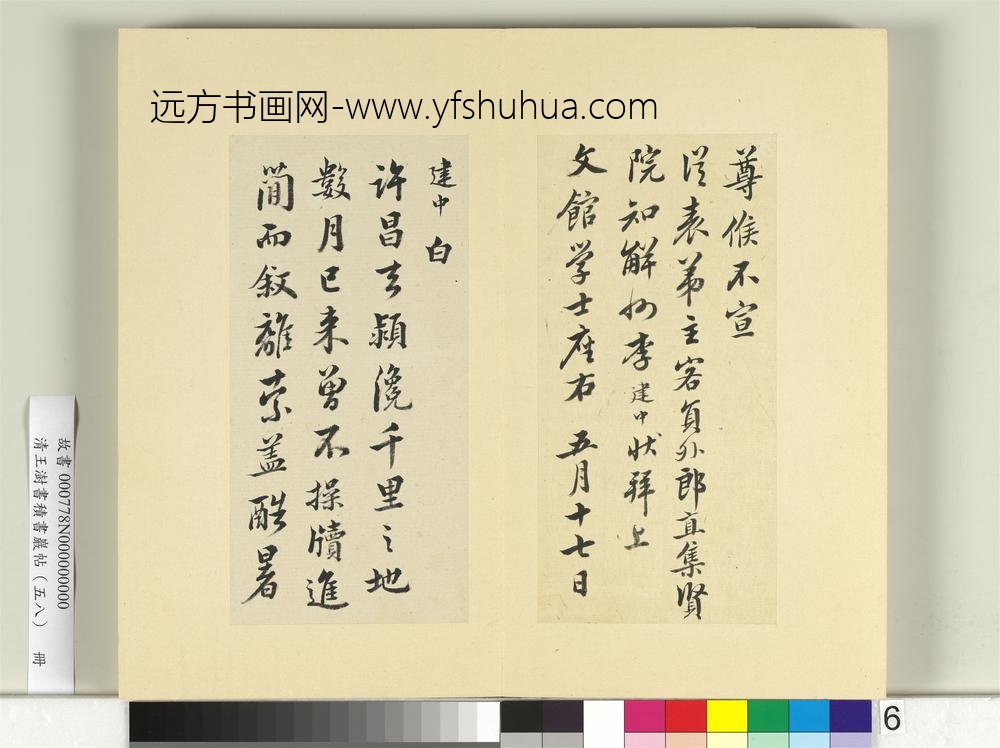 远方书画网-www.yfshuhua.com
尊候不宣
從表弟主客員外郎直集賢
院知解州李建中狀拜上
文館学士座右 五月十七日
建中 白
許昌去潁瀍千里之地
數月已来曾不操牘進
簡而叙離索盖酷暑
故書000778N000000000
清王澍書積書巖帖（五八） 冊
6